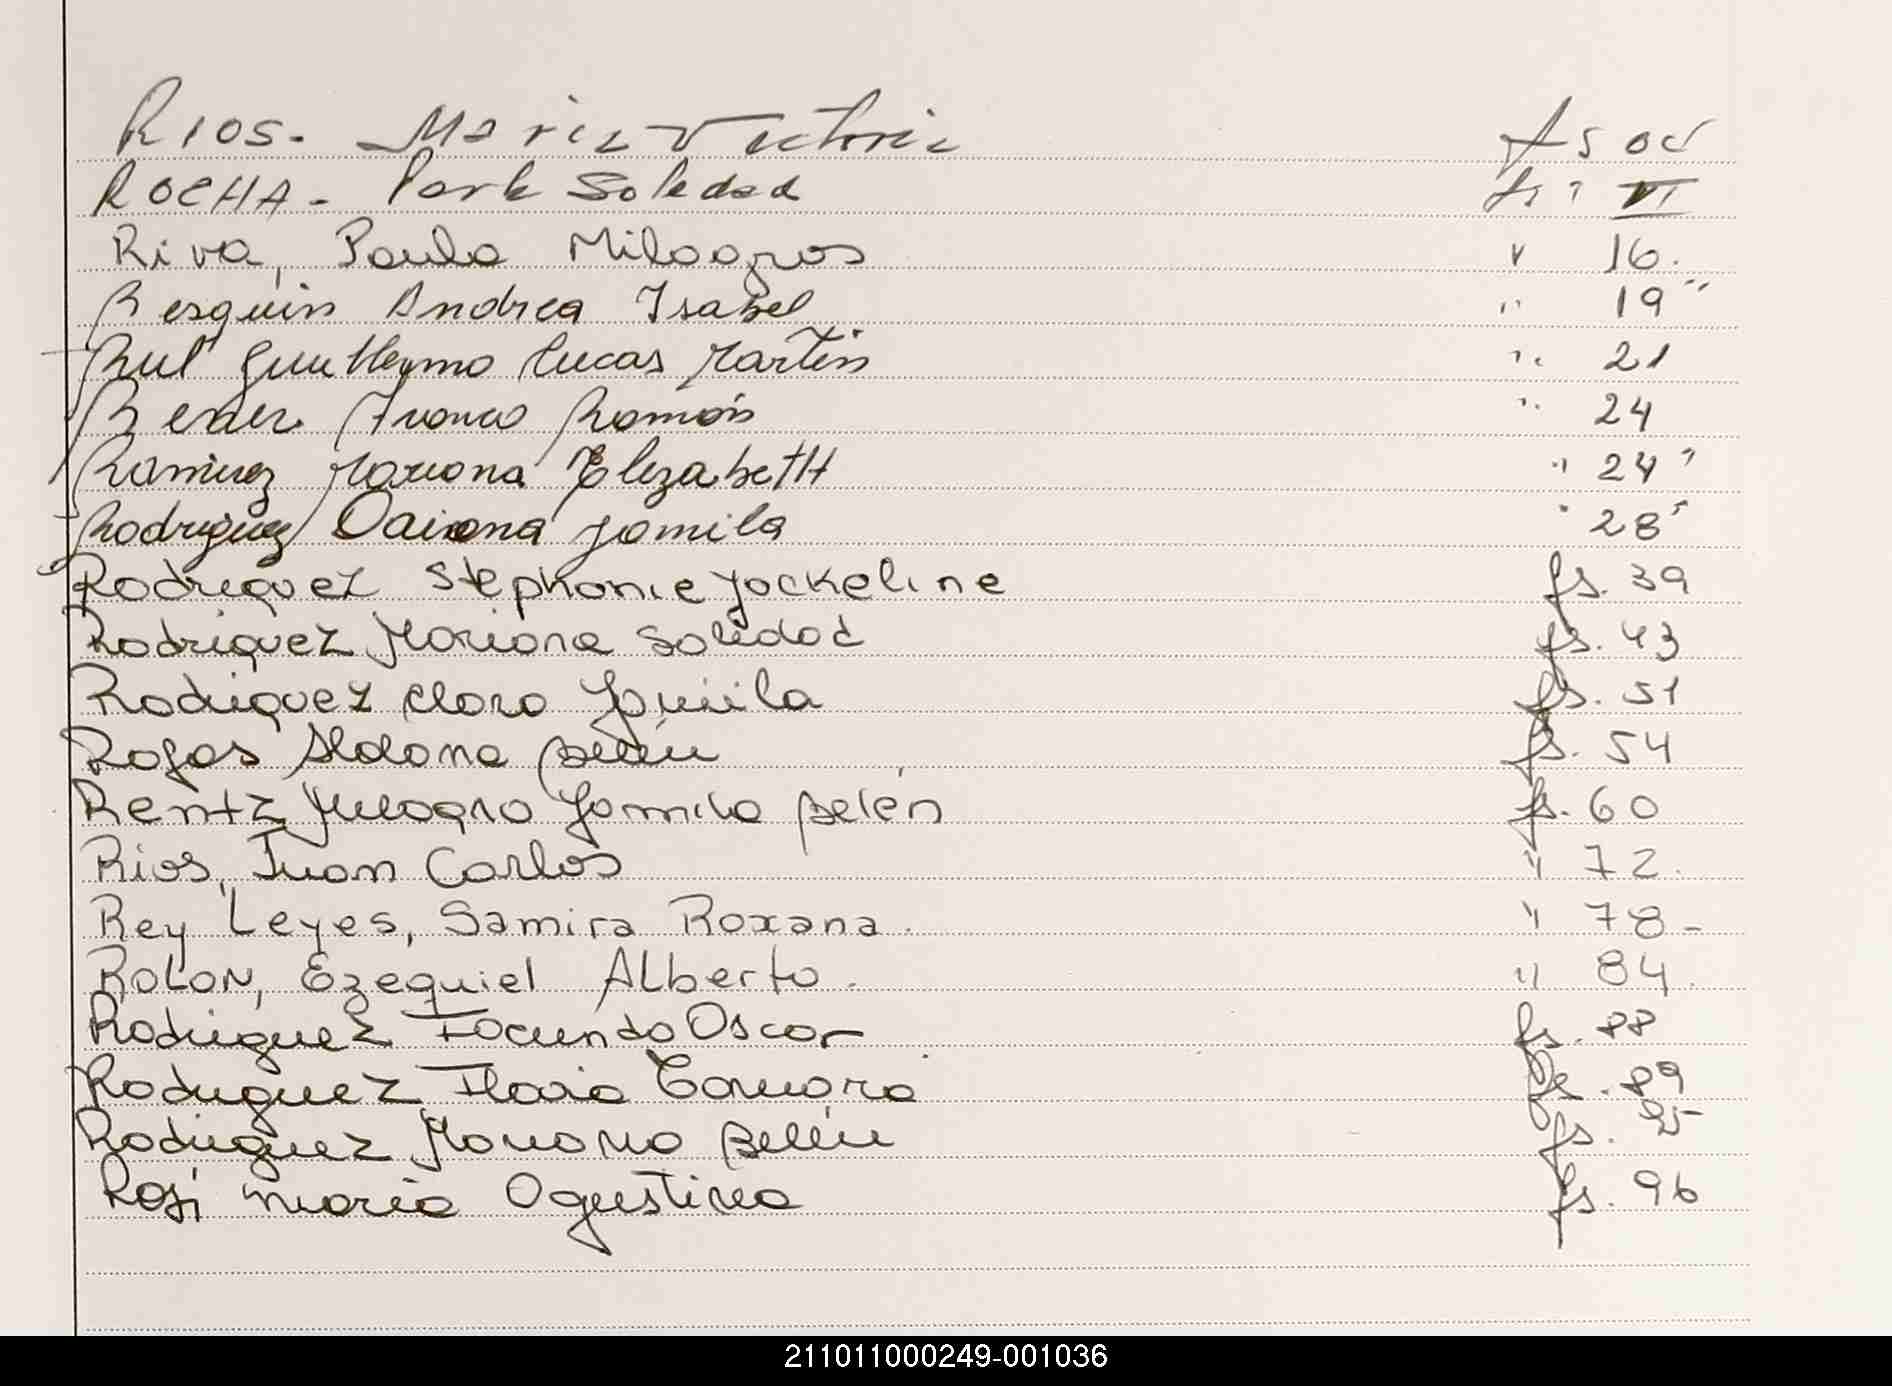 RIOS. Maria Victoria fs 
ROCHA. Soledad fs: VI
Riva, Paula Milagros " 16.
Resquin Andrea Isabel " 19"
Rul Guillermo Lucas Martin " 21
Franco Ramón " 24
Ramirez Mariana Elizabeth " 24"
Rodriguez Daiana Jamila " 28"
Rodriguez Stephanie Jackeline fs. 39
Rodriguez Mariana Soledad fs. 43
Rodriguez Clara Jamila fs. 51
Rojas Aldana Belén fs. 54
Rentz Milagro Jamila Belén fs. 60
Rios, Juan Carlos " 72.
Rey Leyes, Samira Roxana. " 78-
ROLON, Ezequiel Alberto. " 84.
Rodriguez Facundo Oscar fs. 88
Rodriguez Flavia Tamara fs. 89
Rodriguez Mariana Belén fs. 95
Rosi Maria Agustina fs. 96
211011000249-001036